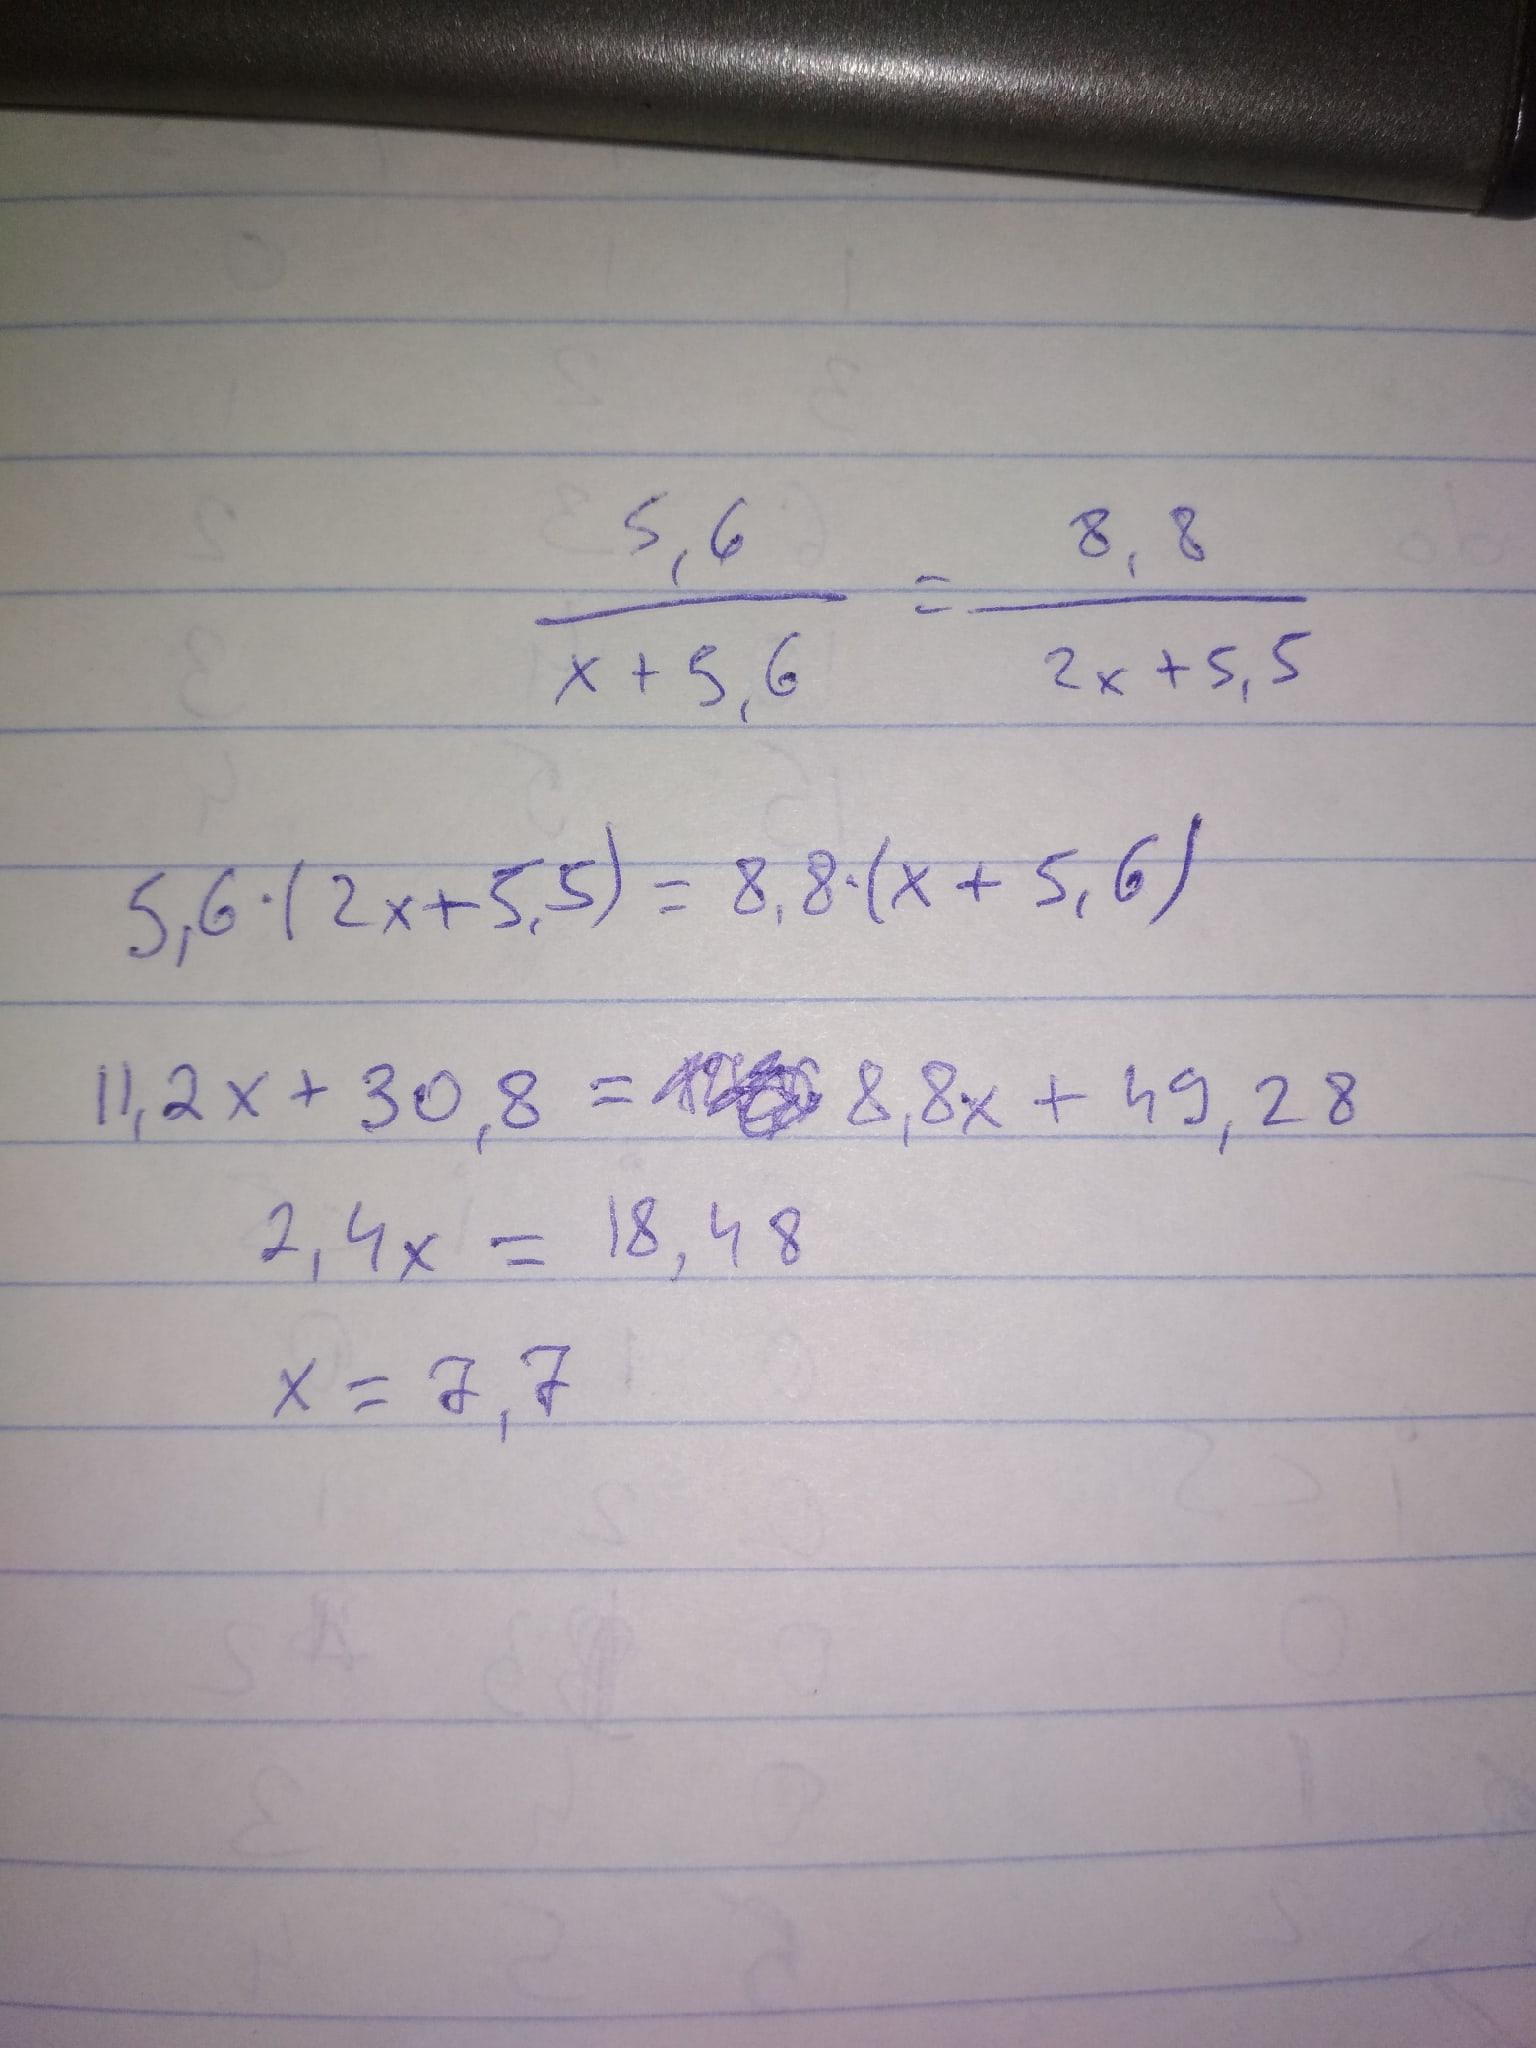 5,6/(x+5,6) = 8,8/(2x+5,5)
5,6·(2x+5,5) = 8,8·(x+5,6)
11,2x + 30,8 = 8,8x + 49,28
2,4x = 18,48
x = 7,7